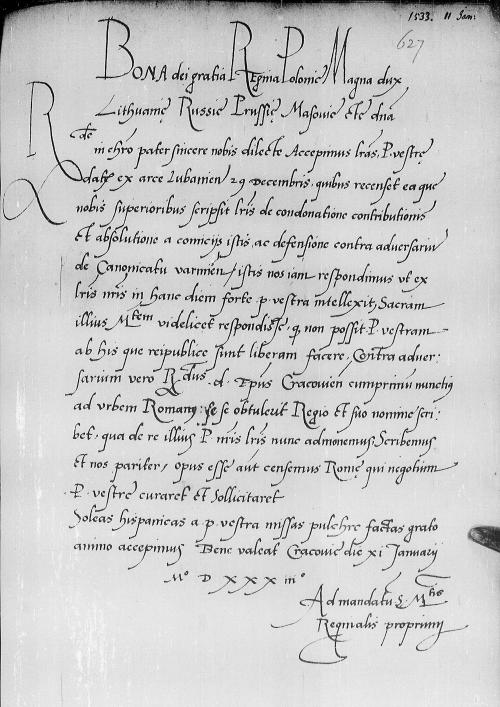 1533. 11 Jan:
627
BONA dei gratia Regina Polonię Magna dux
Lithuanię Russię Prussię Masovię etc dna
Rde in chro pater sincere nobis dilecte Accepimus lras. P. vestrę
datas ex arce Lubavien 29 Decembris, quibus recenset ea que
nobis superioribus scripsit lris de condonatione contributionis
et absolutione a comicijs istis, ac defensione contra adversariu
de Canonicatu varmien / istis nos iam respondimus ut ex
lris nris in hanc diem forte p. vestra intellexit, Sacram
illius Mtem videlicet respondisse, q non possit P. vestram
ab his que reipublice sunt liberam facere, Contra adver:
sarium vero Rdus. d. Epus Cracovien cumprimu nunctius
ad urbem Romanu: se obtulerit Regio et suo nomine scri:
bet, qua de re illius P. nris lris nunc admonemus. Scribemus
et nos pariter, opus esse aut censemus Romę qui negotium
P. vestrę curaret et sollicitaret
Soleas hispanicas a p. vestra missas pulchre factas grato
animo accepimus Bene valeat Cracovię die xi Januarij
Mo D XXX iiio
Ad mandatu S. Mtis
Reginalis propriu